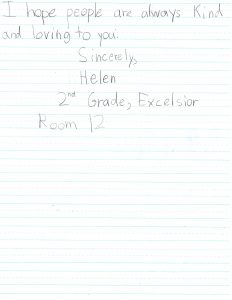 I hope people are always Kind
and loving to you.
Sincerely,
Helen
2nd Grade, Excelsior
Room 12